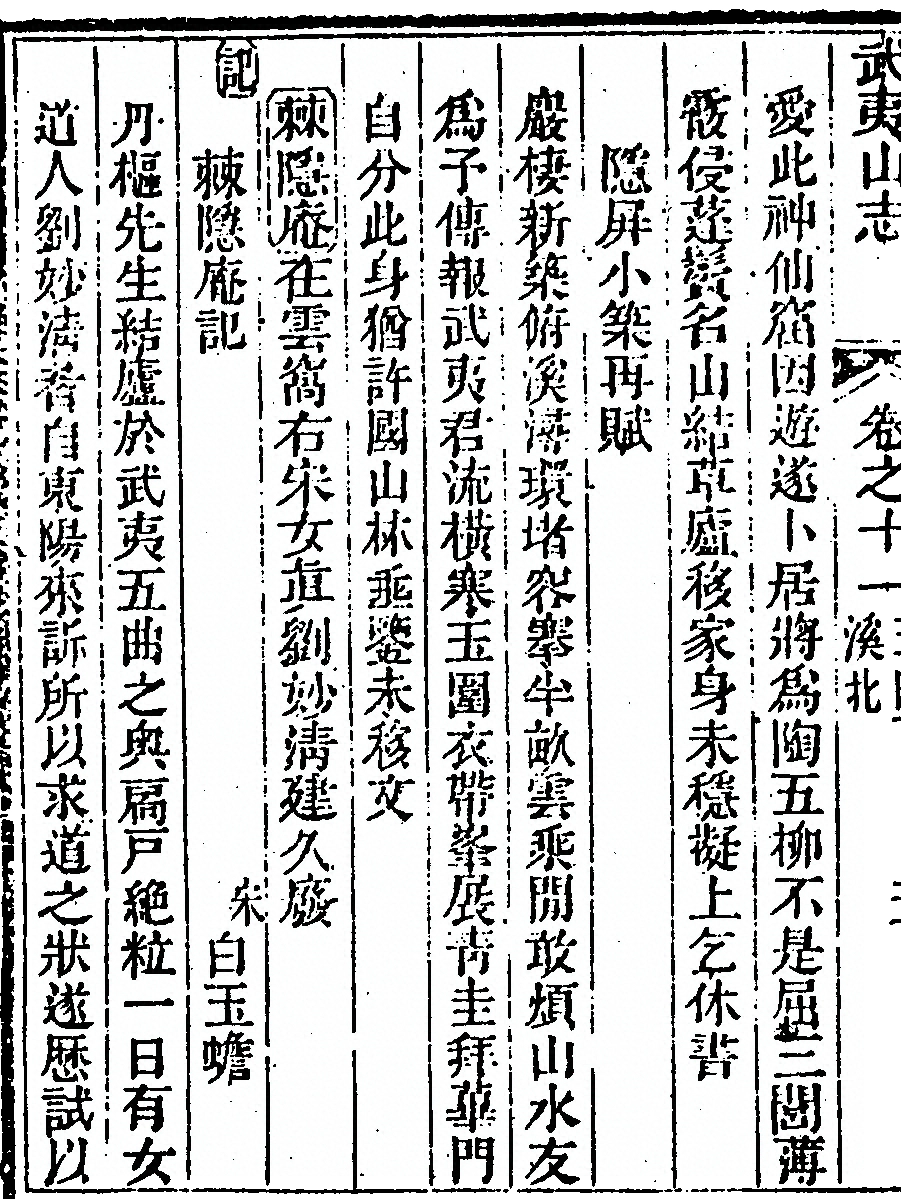 武夷山志 卷之十一 溪北
愛此神仙窟因遊遂卜居將爲陶五柳不是屈三閭薄
骰侵蓬鬢名山結草廬移家身未穩擬上乞休書
隱屏小築再賦
巖棲新築俯溪濆環堵容搴半畝雲乘閒敢煩山水友
爲予傳報武夷君流橫寒玉圍衣帶峯展靑圭拜蓽門
自分此身猶許國山林垂鑒未移文
棘隱庵在雲窩右宋女眞劉妙淸建久廢
記
棘隱庵記 宋白玉蟾
丹樞先生結廬於武夷五曲之奥扃戸絶粒一日有女
道人劉妙淸者自東陽來訴所以求道之狀遂歷試以